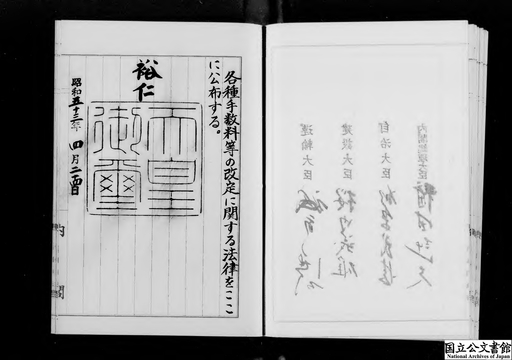 自治大臣
建設大臣
運輸大臣
各種手数料等の改定に関する法律をここ
に公布する。
裕仁
天皇
御璽
昭和五十三年四月二四日
内閣
国立公文書館
National Archives of Japan